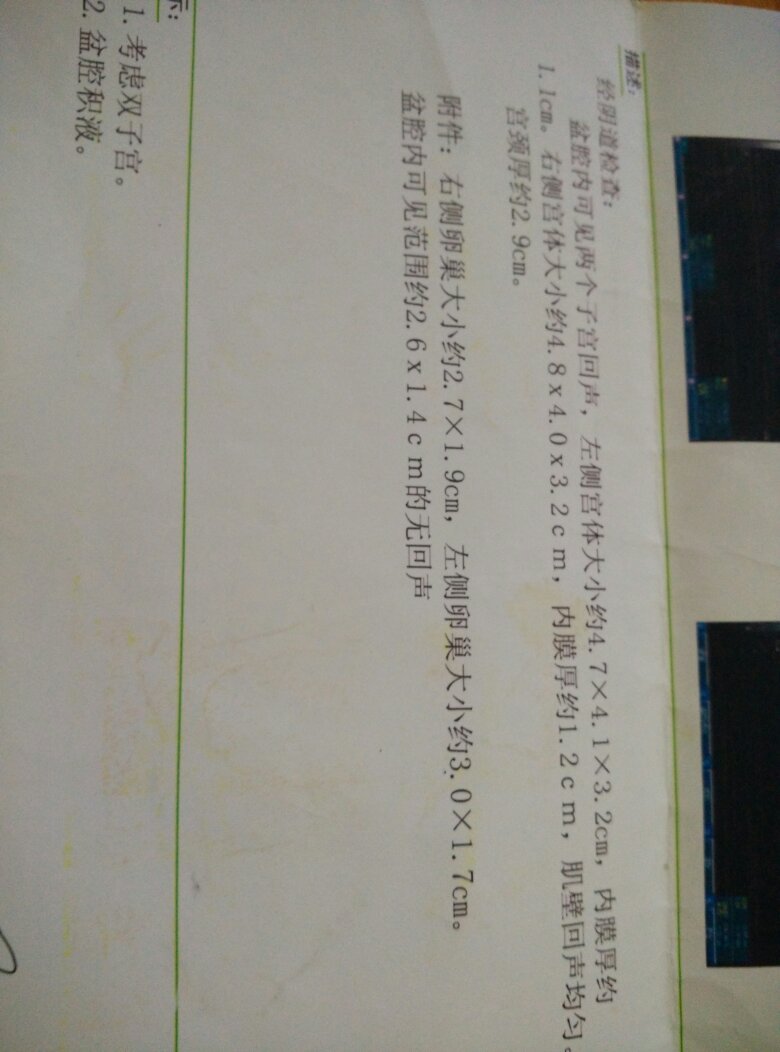 描述:
经阴道检查:
盆腔内可见两个子宫回声，左侧宫体大小约4.7×4.1×3.2cm，内膜厚约
1.1cm。右侧宫体大小约4.8x4.0x3.2cm，内膜厚约1.2cm，肌壁回声均匀。
宫颈厚约2.9cm。
附件：右侧卵巢大小约2.7×1.9cm，左侧卵巢大小约3.0×1.7cm。
盆腔内可见范围约2.6x1.4cm的无回声
示:
1. 考虑双子宫。
2. 盆腔积液。